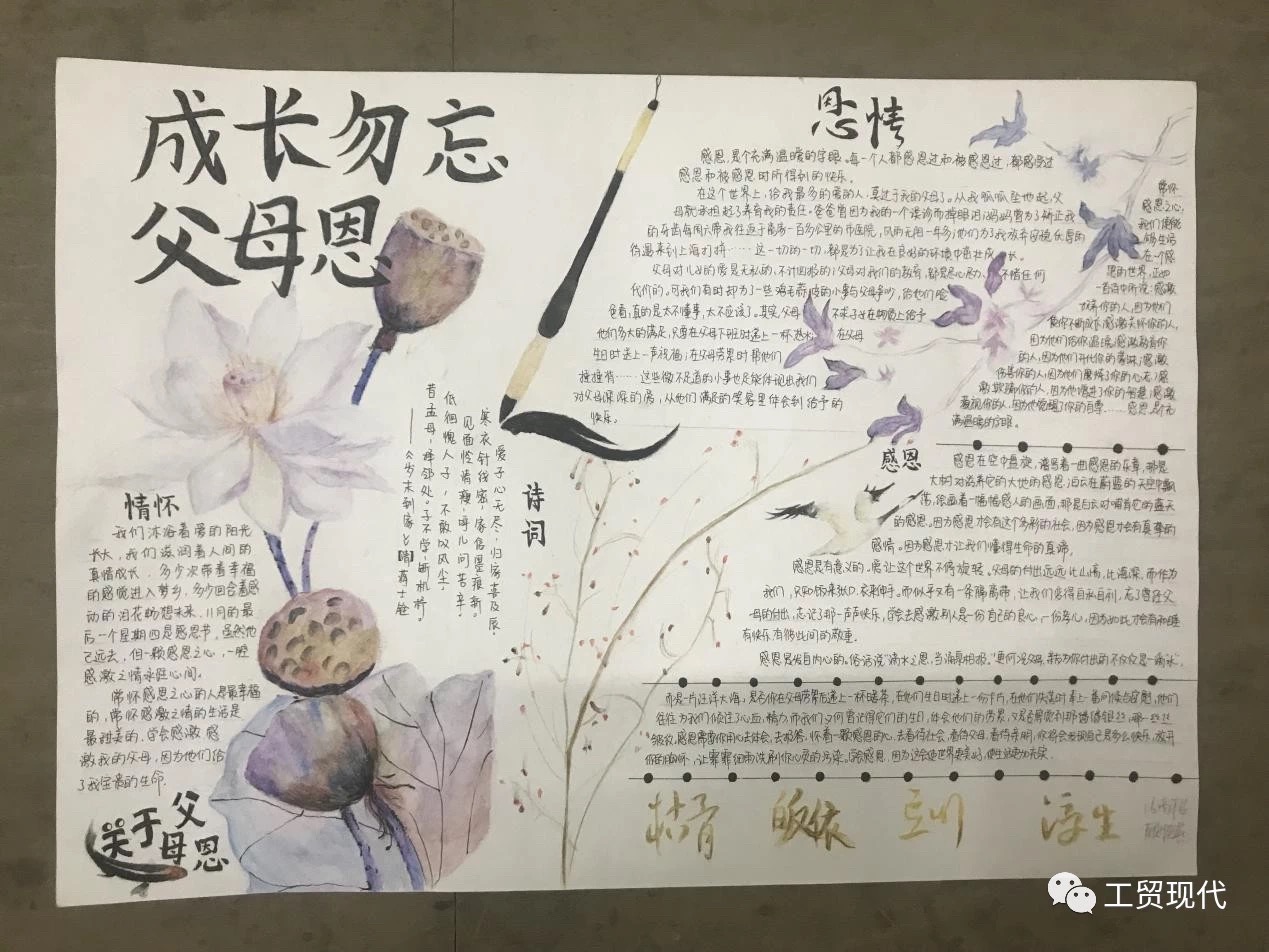 成长勿忘
父母恩
情怀
我们沐浴着爱的阳光
长大，我们滋润着人间的
真情成长．多少次带着幸福
的感觉进入梦乡，多少回含着感
动的泪花畅想未来，11月的最
后一个星期四是感恩节，虽然他
已远去，但一颗感恩之心，一腔
感激之情永驻心间。
常怀感恩之心的人是最幸福
的，常怀感激之情的生活是
最甜美的．学会感激 感
激我的父母，因为他们给
了我宝贵的生命．
关于父母恩
诗词
爱子心无尽，归家喜及辰，
寒衣针线密，家信墨痕新。
见面怜清瘦，呼儿问苦辛，
低徊愧人子，不敢叹风尘，
昔孟母，择邻处。子不学，断机杼。
——《岁末到家》[清]蒋士铨
恩情
感恩，是个充满温暖的字眼。每一个人都感恩过和被感恩过，都感受过
感恩和被感恩时所得到的快乐。
在这个世界上，给我最多的爱的人，莫过于我的父母了。从我呱呱坠地起，父
母就承担起了养育我的责任。爸爸曾因为我的一个误诊而掉眼泪；妈妈曾为了矫正我
的牙齿每周六带我往返于离家一百多公里的市医院，风雨无阻一年多；他们为了我放弃
来到上海打拼……这一切的一切，都是为了让我在良好的环境中茁壮成长。
父母对儿女的爱是无私的，不计回报的；父母对我们的教育，都是尽心尽力、不惜任何
代价的。可我们有时却为了一些鸡毛蒜皮的小事与父母争吵，给他们脸
色看，真的是太不懂事，太不应该了。其实，父母 不求子女在物质上给予
他们多大的满足，只要在父母下班时递上一杯热水， 在父母
生日时送上一声祝福，在父母劳累时帮他们
捶捶背……这些微不足道的小事也足能体现出我们
对父母深深的爱，从他们满足的笑容里体会到给予的
快乐。
常怀
感恩之心，
我们便能
够生活
在一个感
恩的世界，正如
一首诗中所说：感激
你的人，因为他们
使你不断成长；感激关怀你的人，
因为他们给你温暖；感激
的人，因为他们
伤害你的人，因为他们磨练了你的心志；感
激欺骗你的人，因为他增进了你的智慧；感激
蔑视你的人，因为他觉醒了你的自尊……感恩是个充
满温暖的字眼。
感恩
感恩在空中盘旋，谱写着一曲感恩的乐章，那是
大树对滋养它的大地的感恩；白云在蔚蓝的天空中飘
荡，绘画着一幅幅感人的画面，那是白云对哺育它的蓝天
的感恩。因为感恩才会有这个多彩的社会，因为感恩才会有真挚的
感情。因为感恩才让我们懂得生命的真谛。
感恩是有意义的。爱让这个世界不停旋转。父母的付出远远比山高，比海深，而作为
我们，只知饭来张口，衣来伸手。而似乎又有一条隔离带，让我们变得自私自利，忘了曾经父
母的付出，忘记了那一声声快乐，学会去感激别人是一份自己的良心，一份孝心，因为如此才会有和睦
有快乐，有彼此间的敬重。
感恩是发自内心的。俗话说“滴水之恩，当涌泉相报。”更何况父母，亲友为你付出的不仅仅是“一滴水”，
而是一片汪洋大海，是否你在父母劳累后递上一杯暖茶，在他们生日时递上一份卡片，在他们失落时奉上一番问候与安慰，他们
往往为我们倾注了心血，精力，而我们又何曾记得它们的生日，体会他们的劳累，又是否察觉到那缕缕银丝，那一丝丝
皱纹，感恩需要你用心去体会，去报答，怀着一颗感恩的心，去看待社会，看待父母，看待亲朋，你将会发现自己是多么快乐，放开
你的胸怀，让霏霏细雨洗刷你心灵的污染。学会感恩，因为这会使世界更美好，使生活更加充实．
皈依
浮生
工贸现代